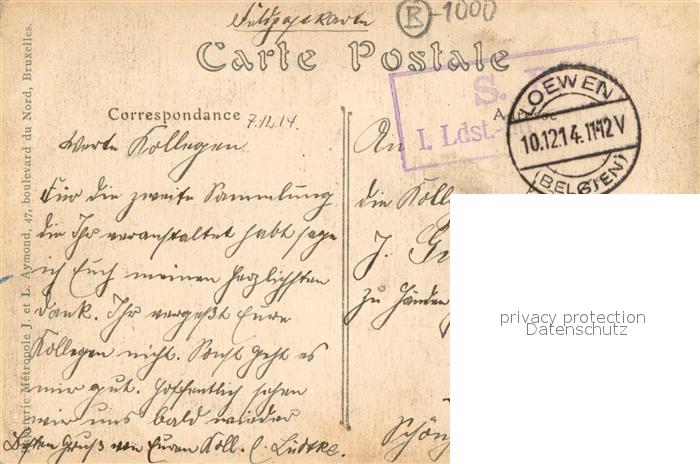 Feldpostkarte
B-1000
Carte Postale
S. B.
I. Ldst.-
LOEWEN
10.12.14. 11-12 V
(BELGIEN)
Correspondance
7.12.14
Werte Kollegen
Für die zweite Sammlung
die Ihr veranstaltet habt sage
ich Euch meinen herzlichsten
Dank. Ihr vergeßt Eure
Kollegen nicht. Sonst geht es
mir gut. Hoffentlich sehen
wir uns bald wieder
Besten Gruß von Euren Koll. C. Lüdtke.
An
die Koll
J. Gu
zu Händen
Schön
privacy protection
Datenschutz
Métropole J. et L. Aymond, 47, boulevard du Nord, Bruxelles.